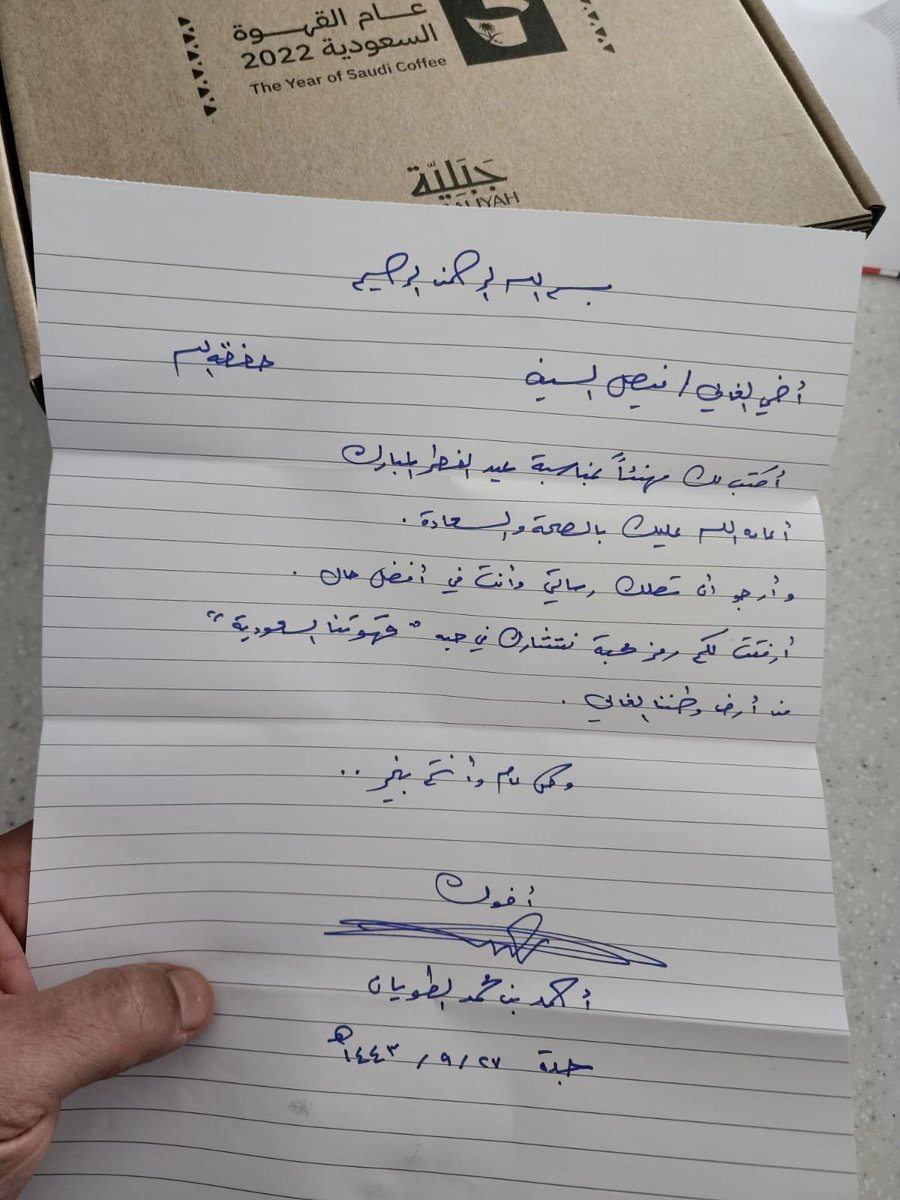 عام القهوة
السعودية 2022
The Year of Saudi Coffee
جَبَليّة
ALIYAH
بسم الله الرحمن الرحيم
أخي الغالي / فيصل السيف حفظه الله
أكتب لك مهنئاً بمناسبة عيد الفطر المبارك
أعاده الله عليك بالصحة والسعادة .
وأرجو أن تصلك رسالتي وأنت في أفضل حال .
أرفقت لكم رمز محبة نتشارك في حبه " قهوتنا السعودية "
من أرض وطننا الغالي .
وكل عام وأنتم بخير ..
أخوك
أحمد بن محمد الطويان
جدة ٢٧ / ٩ / ١٤٤٣هـ